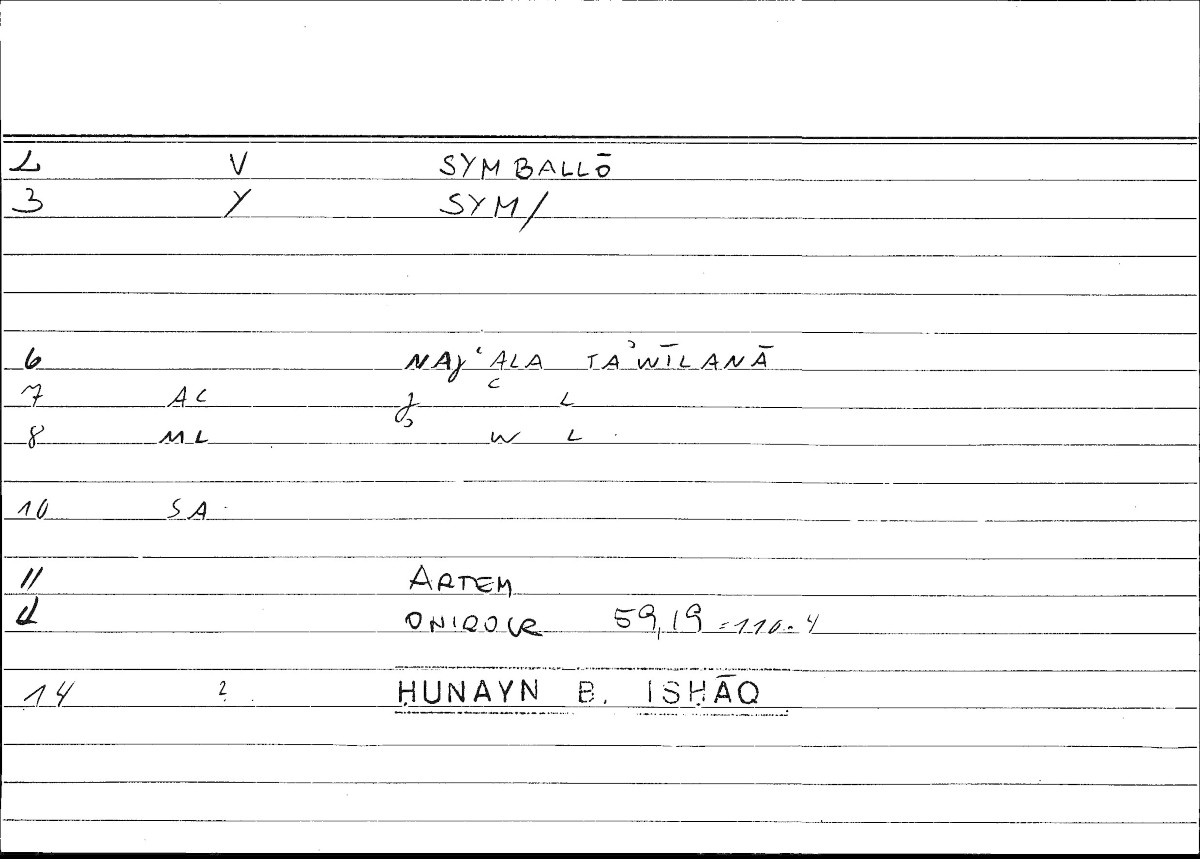 2 V SYMBALLŌ
3 Y SYM/
6 NAJʿALA TAʾWĪLANĀ
7 AC J ʿ L
8 ML ʾ W L
10 SA
11 ARTEM
12 ONIROCR 59,19 = 110.4
14 ? ḤUNAYN B. ISḤĀQ